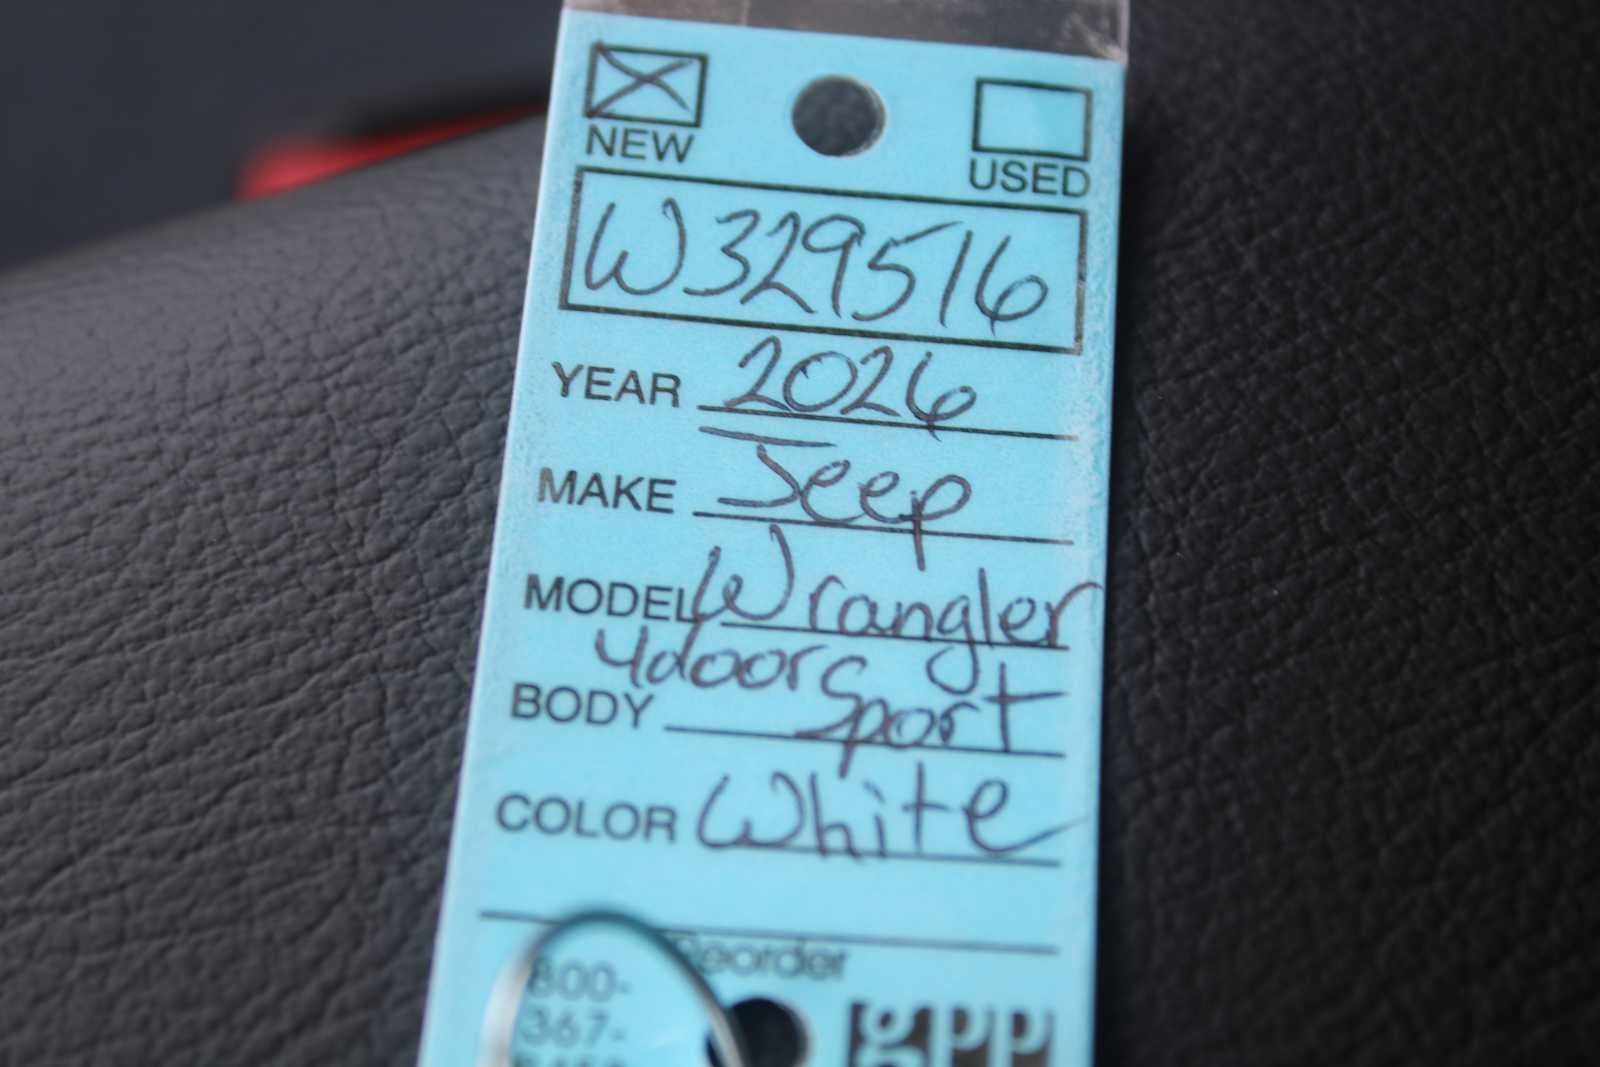 NEW
USED
W329516
YEAR 2026
MAKE Jeep
MODEL Wrangler
4door Sport
BODY
COLOR White
Reorder
800-
367-
gpp